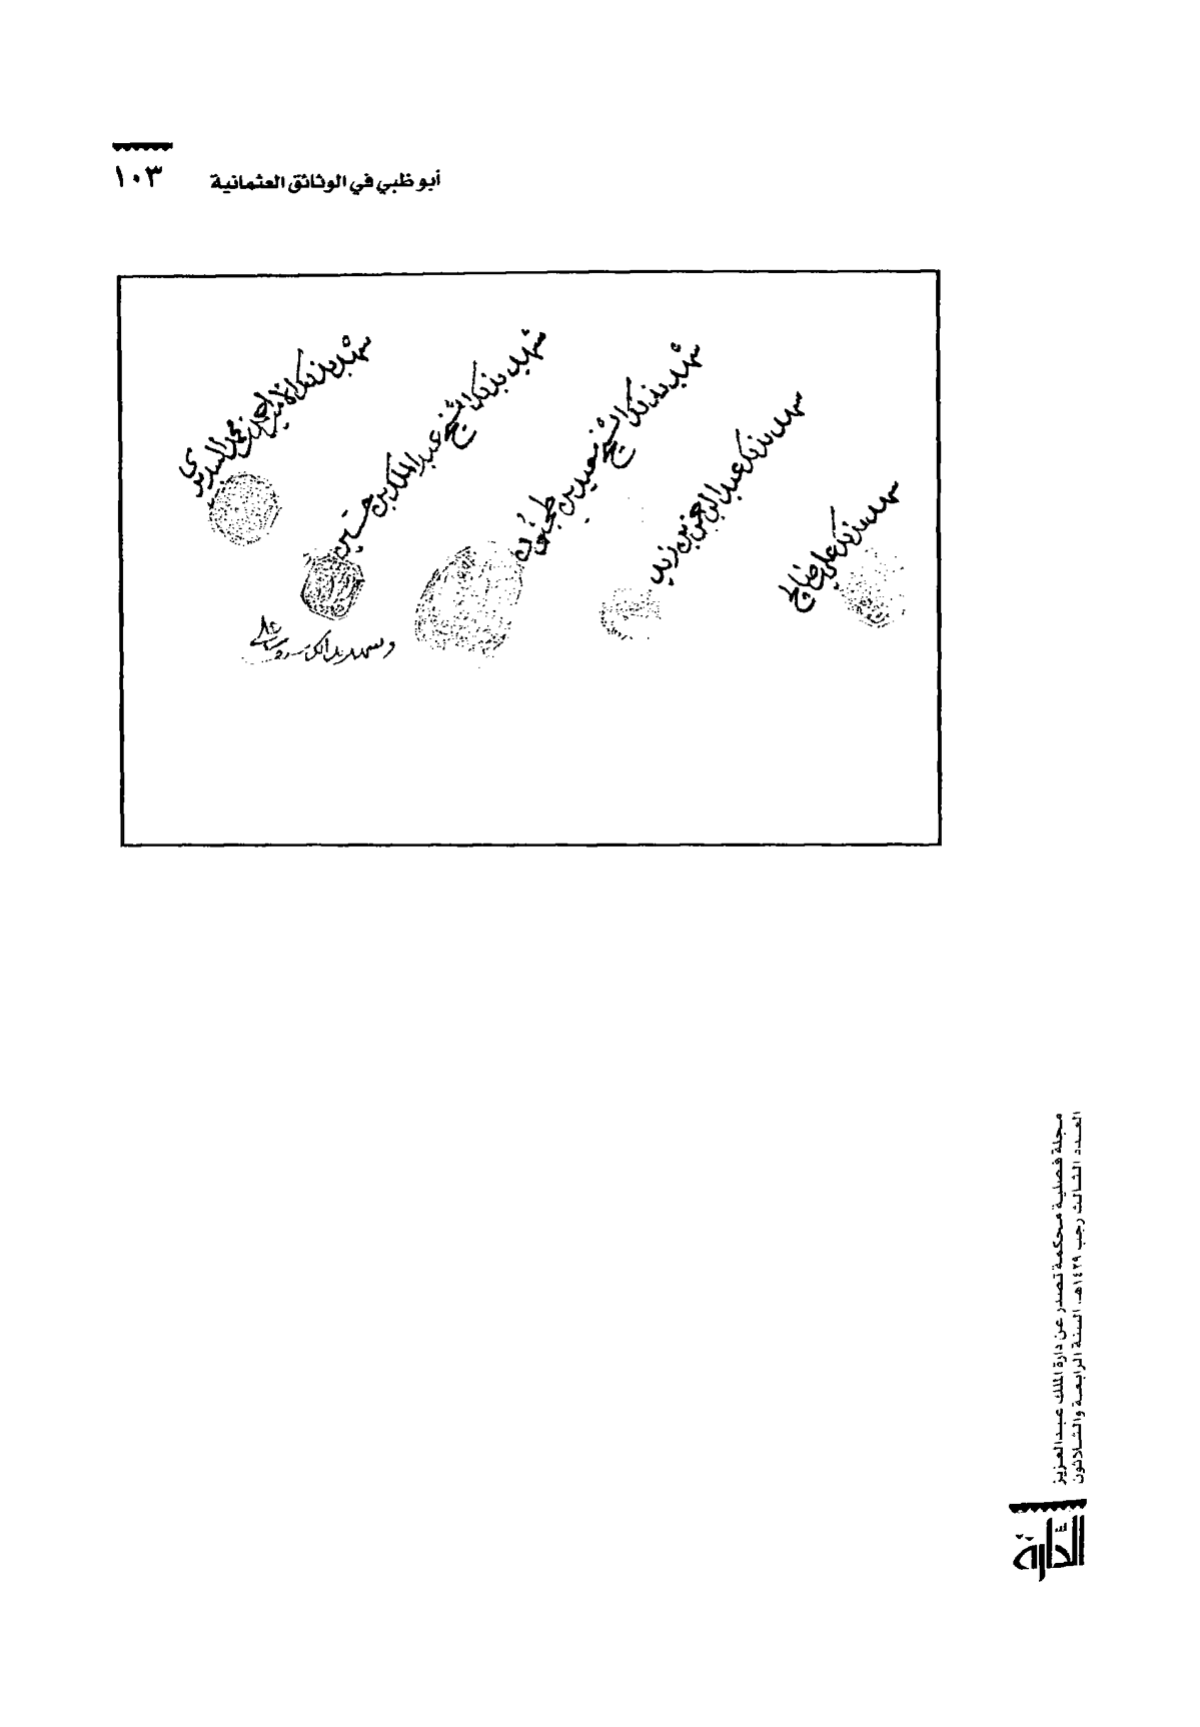 ١٠٣
أبو ظبي في الوثائق العثمانية
شهد بذلك الأمير أحمد بن محمد السديري
شهد بذلك الشيخ عبد الملك بن حسين
شهد بذلك الشيخ سعيد بن طحنون
شهد بذلك عبد العزيز بن زيد
شهد بذلك علي صالح
وشهد بذلك
مجلة فصلية محكمة تصدر عن دارة الملك عبدالعزيز
العدد الثالث رجب ١٤٢٩هـ، السنة الرابعة والثلاثون
الدارة